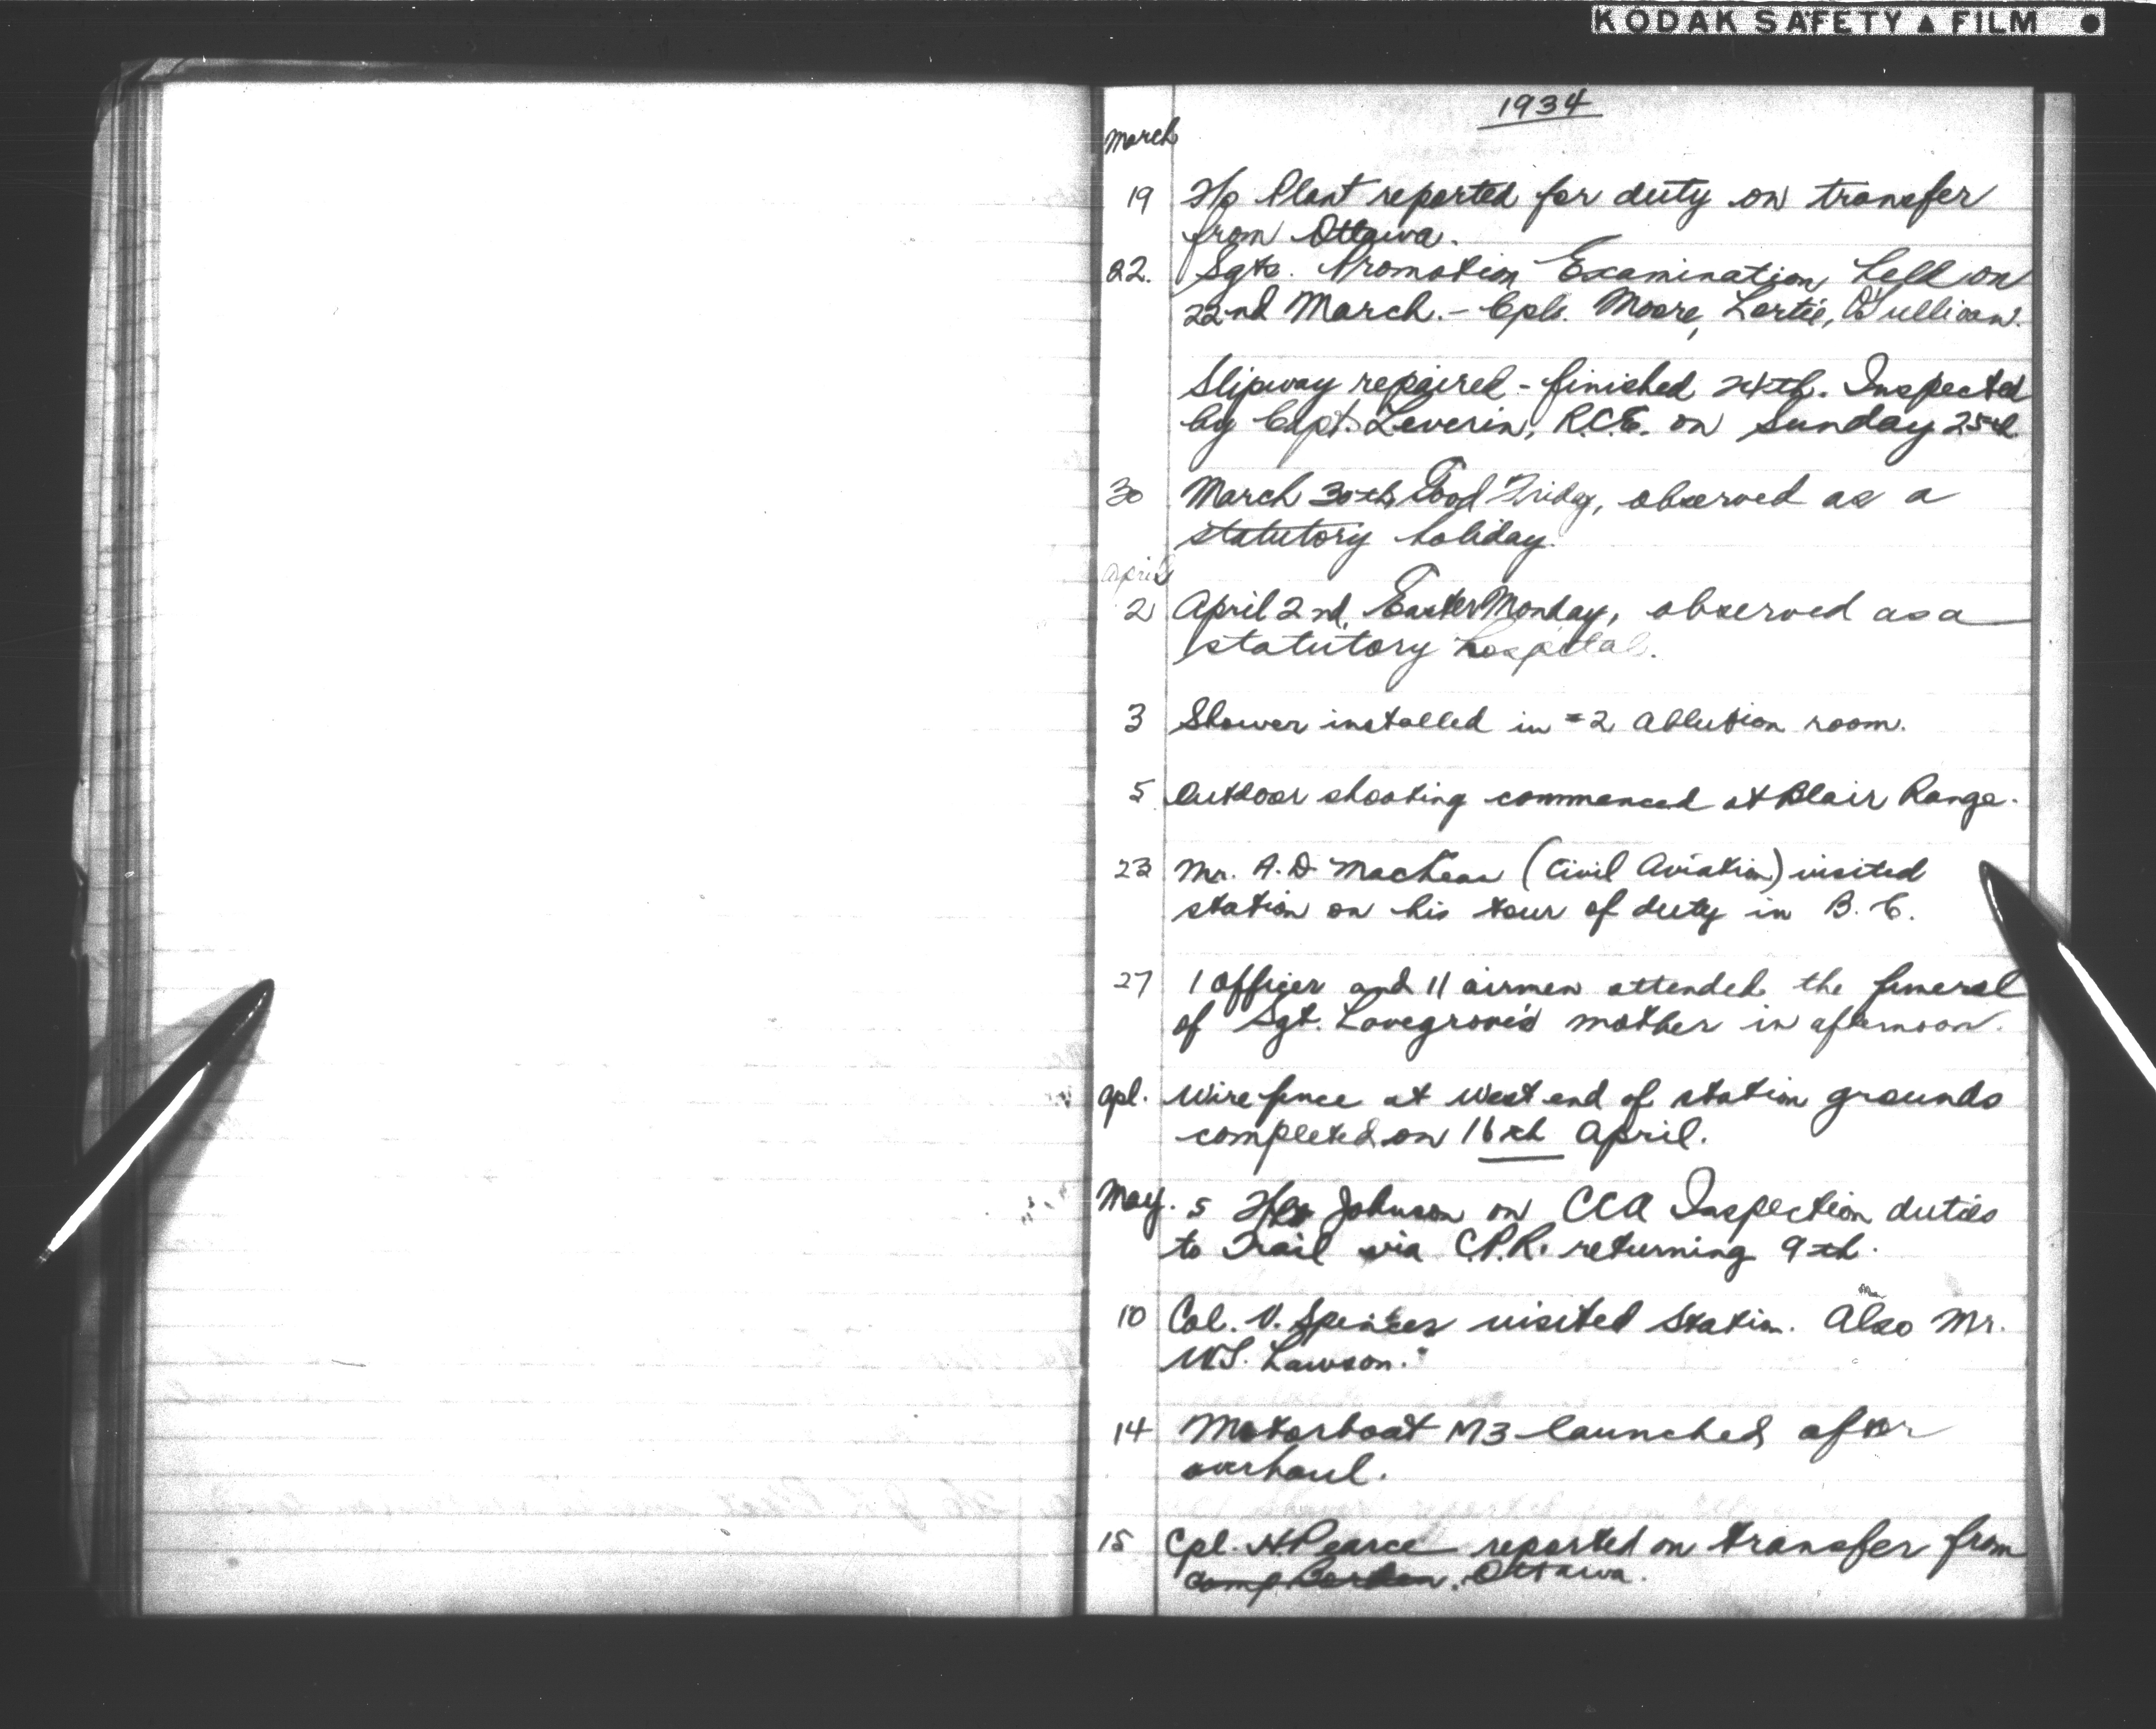 KODAK SAFETY ▲ FILM
1934
March
19 F/o Plant reported for duty on transfer
from Ottawa.
22. Sgts. Promotion Examination held on
22nd March. - Cpls. Moore, Lortie, O'Sullivan.
Slipway repaired - finished 24th. Inspected
by Capt. Leverin, R.C.E. on Sunday
30 March 30th, Good Friday, observed as a
statutory holiday.
April
2 April 2nd, Easter Monday, observed as a
statutory hospital.
3 Shower installed in #2 Ablution room.
5 Outdoor shooting commenced at Blair Range.
23 Mr. A.D. MacLean (Civil Aviation) visited
station on his tour of duty in B.C.
27 1 officer and 11 airmen attended the funeral
of Sgt. Lovegrove's mother in afternoon.
Apl. Wire fence at West end of station grounds
completed on 16th April.
May. 5 Johnson on CCA Inspection duties
to Trail via C.P.R. returning 9th.
10 Col. V. Spencer visited Station. Also Mr.
W.S. Lawson.
14 Motorboat M3 launched after
overhaul.
15 Cpl. H. Pearce reported on transfer from
Camp Borden. Ottawa.